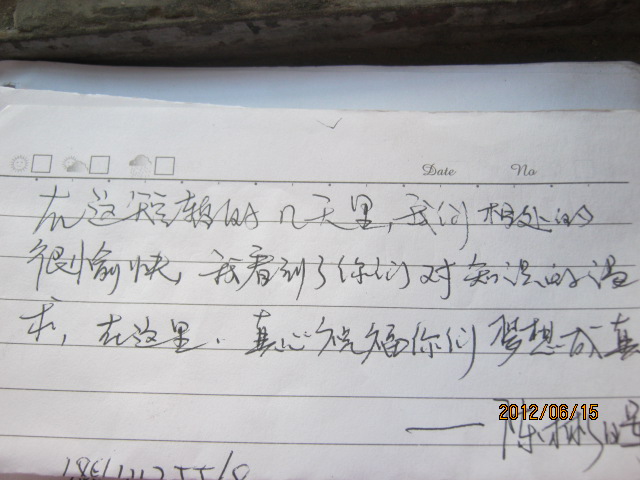 Date No
在这短暂的几天里,我们相处的
很愉快,我看到了你们对知识的渴
求,在这里.真心祝福你们梦想成真
2012/06/15
——陈